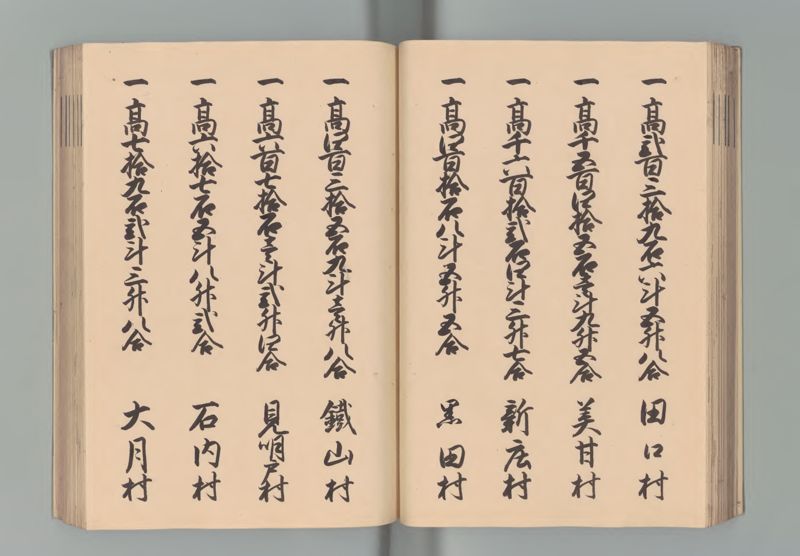 一 高弐百三拾九石六斗五升八合 田口村
一 高千五百四拾五石壱斗九升五合 美甘村
一 高千六百拾弐石四斗三升七合 新庄村
一 高四百拾石八斗五升五合 黒田村
一 高四百三拾五石九斗壱升八合 鐵山村
一 高六百七拾石壱斗弐升四合 見明戸村
一 高六拾七石五斗八升弐合 石内村
一 高七拾九石弐斗三升八合 大月村